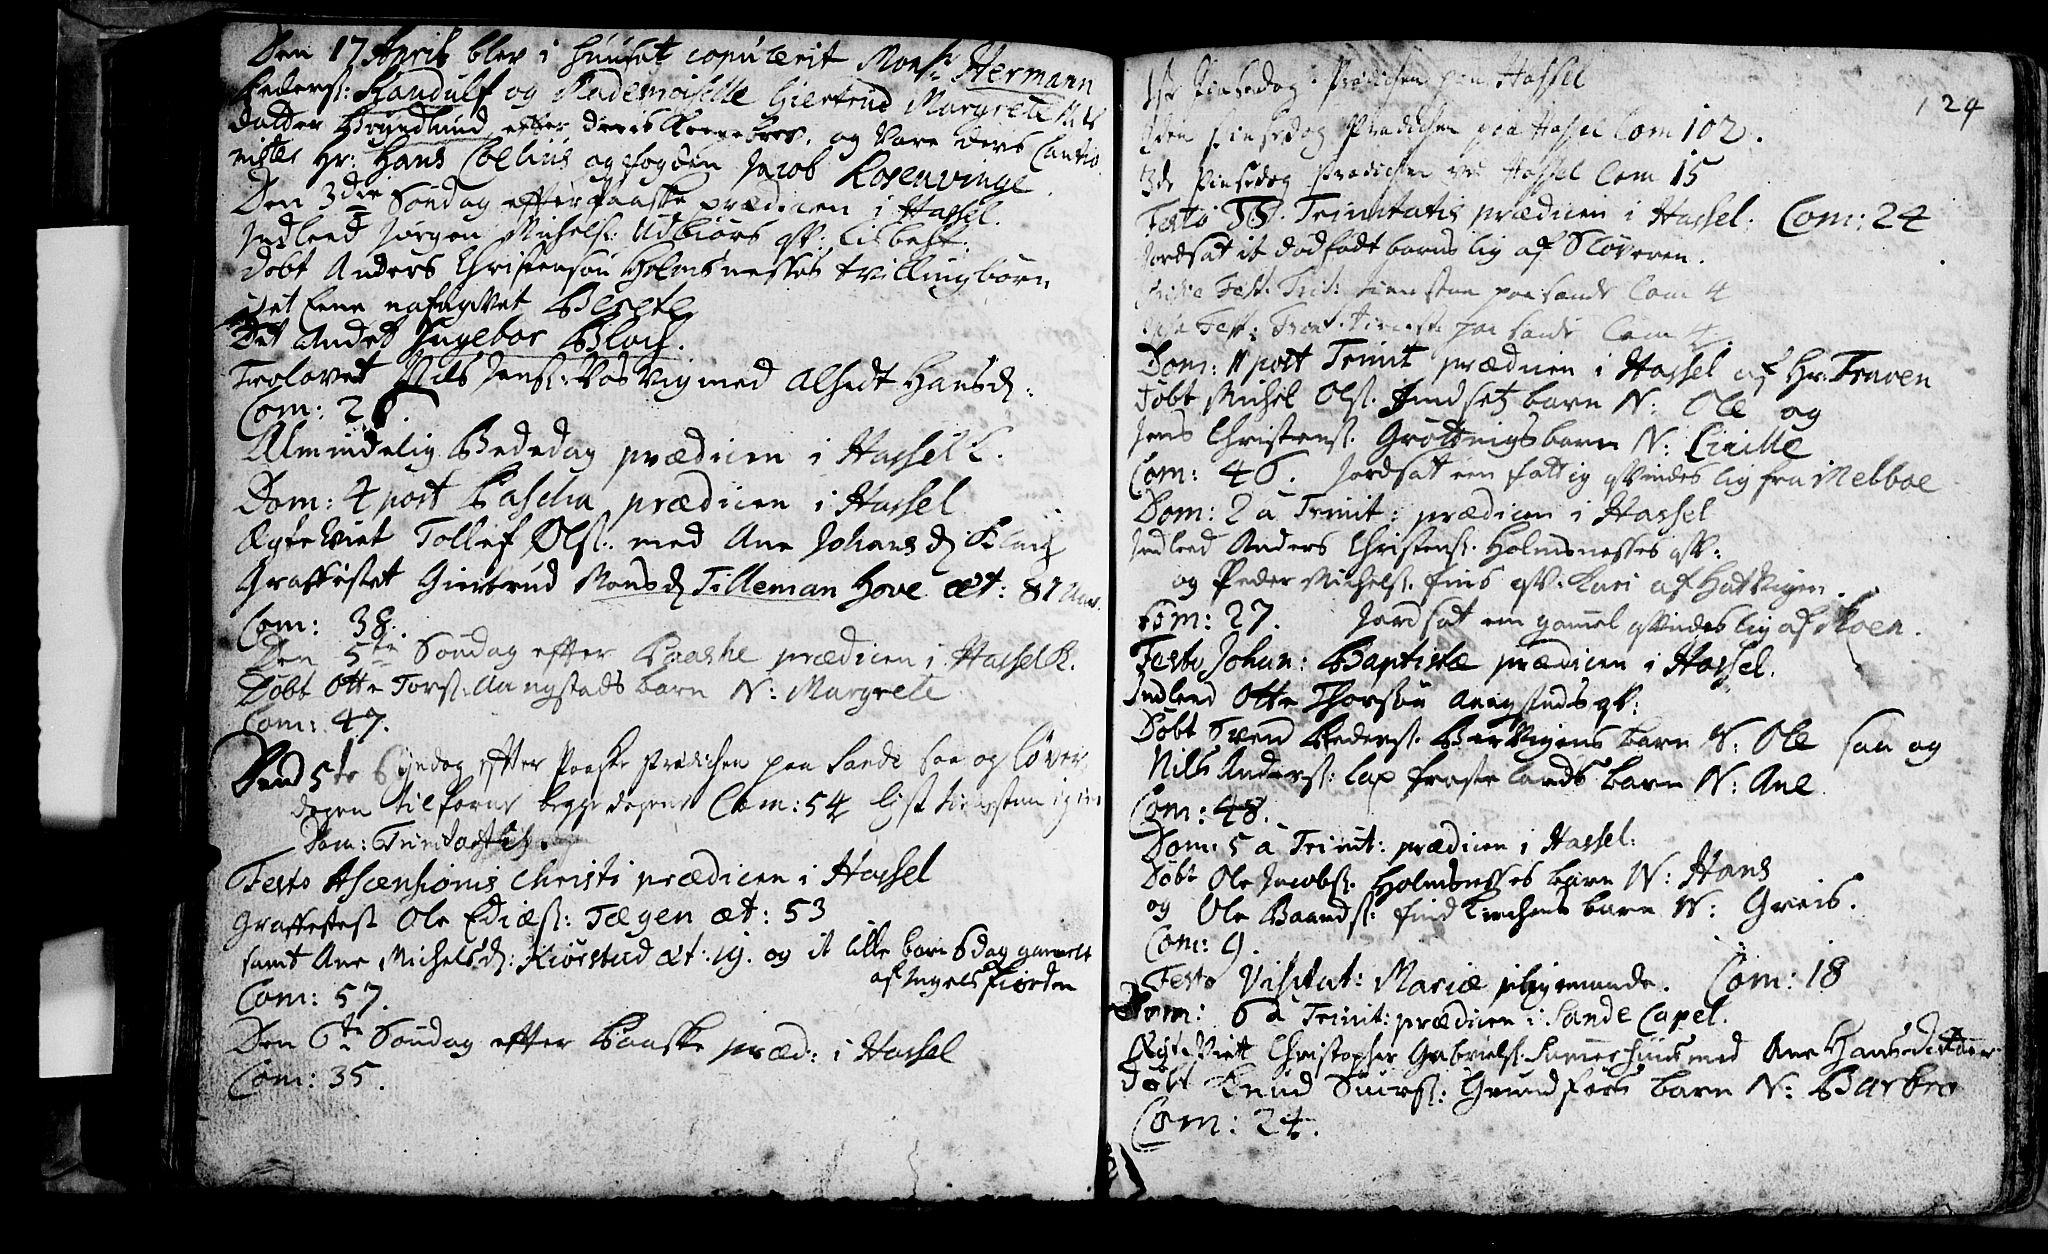 Den 17 April blev i huuset copulerit Mons: Hermann
Peders: Randulf og Mademoiselle Giertrud Margrete
Brundlund efter og vare ders Cautio
nister Hr: Hans Coelius og fogden Jacob Rosenvinge.
Den 3die Søndag efter Paaske prædicen i Hassel.
Indleed Jørgen Michels: Udbiørs qv: Lisbeth.
Døbt Anders Christensøn Holmsnesses tvillingbørn
Det Eene nafngivet Berete
Det Andet Ingebor Bloch.
Trolovet Nils Jens: Vosvig med Alhedt Hansd:
Com: 28.
Almindelig Bededag prædicen i Hassel K.
Dom: 4 post Pascha prædicen i Hassel
Egteviet Tollef Ols: med Ane Johansd:
Graffestet Giertrud Monsd Tilleman Hove æt: 87 Aar.
Com: 38.
Den 5te Søndag efter Paaske prædicen i Hassel K.
Døbt Otte Tors: Aangstads barn N: Margrete
Com: 47.
Dend 5te Syndag efter Paaske Prædichen paa Sande saa og løver
dagen tilforne begge dagene Com: 54
Dom: Trinitatis.
Festo Ascensionis Christi prædicen i Hassel
Graffestest Ole Ediæs: Tægen æt: 53
samt Ane Michelsd: Kiørstad æt: 19. og it lille barn 6 dag gammelt
af Ingelsfiorden
Com: 57.
Den 6te Søndag efter Paaske præd: i Hassel
Com: 35.
124
1ste Pinsedag Prædichen paa Hassel
2den Pinsedag Prædichen paa Hassel Com 102.
3de Pinsedag Prædichen ved Hassel Com 15
Festo SS. Trinitatis prædicen i Hassel. Com: 24
Jordsat it dødfødt barns lig af Sløveren.
Fest: Trin: tienesten paa Sande Com 4
Fest: Trinit. tieneste paa Sande Com 4.
Dom: 1 post Trinit prædicen i Hassel af Hr: Fraven
Døbt Michel Ols: Jindsetz barn N: Ole og
Jens Christens: Grøtnigs barn N: Cicille
Com: 46. Jordsat en fattig qvindes lig fra Melboe
Dom: 2 a Trinit: prædicen i Hassel
Indleed Anders Christens: Holmsnesses qv:
og Peder Michels: Fins qv: Kari af Hatvigen.
Com: 27. Jordsat en gamel qvindes lig af Skoen.
Festo Johan: Baptistæ prædicen i Hassel.
Indleed Otte Thorsøn Aangstads qv:
Døbt Svend Peders: Barvigens barn N: Ole saa og
Nils Anders: Lax barn N: Ane
Com: 48.
Dom: 5 a Trinit: prædicen i Hassel:
Døbt Ole Jacobs: Holmsnesses barn N: Hans
og Ole Baands: barn N: Greis.
Com: 9.
Festo Visitat: Mariæ . Com: 18
Dom: 6 a Trinit: prædicen i Sande Capel.
Egteviett Christopher Gabriels: med Ane Hansd:
Døbt Knud Siurs: Grundførs barn N: Barbro
Com: 24.